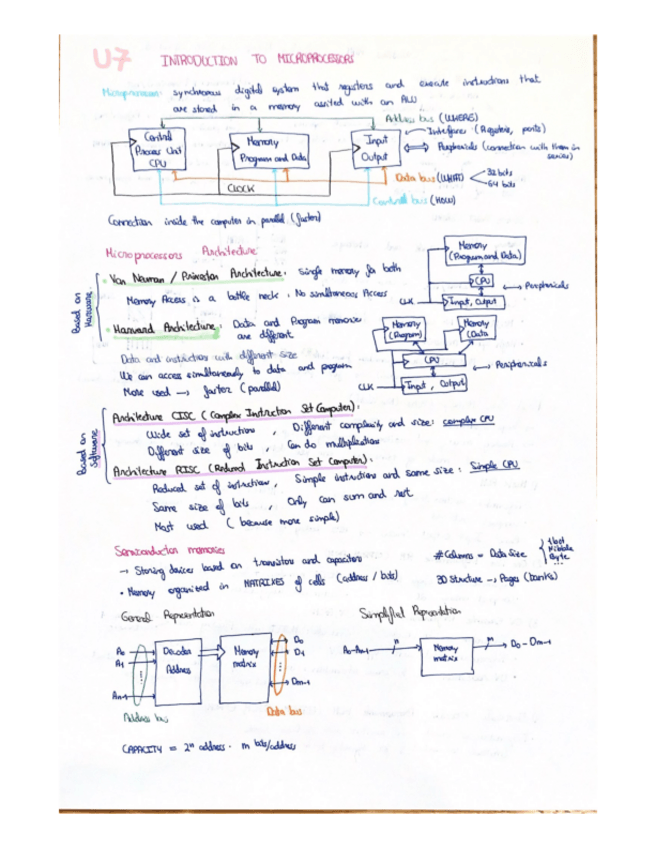 U7 INTRODUCTION TO MICROPROCESSORS
Microprocessor: synchronous digital system that registers and execute instructions that
are stored in a memory assisted with an ALU
Address bus (WHERE)
Central
Process Unit
CPU
Memory
Program and Data
Input
Output
Interfaces (Registers, ports)
Peripherials (connection with them in
series)
Data bus (WHAT)
32 bits
64 bits
CLOCK
Control bus (HOW)
Connection inside the computer in parallel (faster)
Microprocessors Architecture
Based on
Hardware
Von Neuman / Princeton Architecture. Single memory for both
Memory Access is a bottle neck. No simultaneous Access
Memory
(Program and Data)
CPU
CLK
Input, Output
Peripherials
Harvard Architecture. Data and Program memories
are different
Data and instruction with different size
We can access simultaneously to data and program
More used → faster (parallel)
Memory
(Program)
Memory
(Data
CPU
CLK
Input, Output
Peripherials
Based on
Software
Architecture CISC (Complex Instruction Set Computer).
Wide set of instructions, Different complexity and size: complex CPU
Different size of bits, Can do multiplication
Architecture RISC (Reduced Instruction Set Computer).
Reduced set of instruction, Simple instructions and same size: Simple CPU
Same size of bits, Only can sum and rest
Most used (because more simple)
Semiconductor memories
→ Storing devices based on transistors and capacitors
• Memory organised in MATRIXES of cells (address / bits)
#Columns = Data Size
1 bit
Nibble
Byte
...
3D Structure → Pages (banks)
General Representation
A0
A1
An-1
Decoder
Address
Memory
matrix
D0
D1
Dm-1
Address bus
Data bus
Simplified Representation
A0-An-1
n
Memory
matrix
m
D0 - Dm-1
CAPACITY = 2^n address · m bits/address